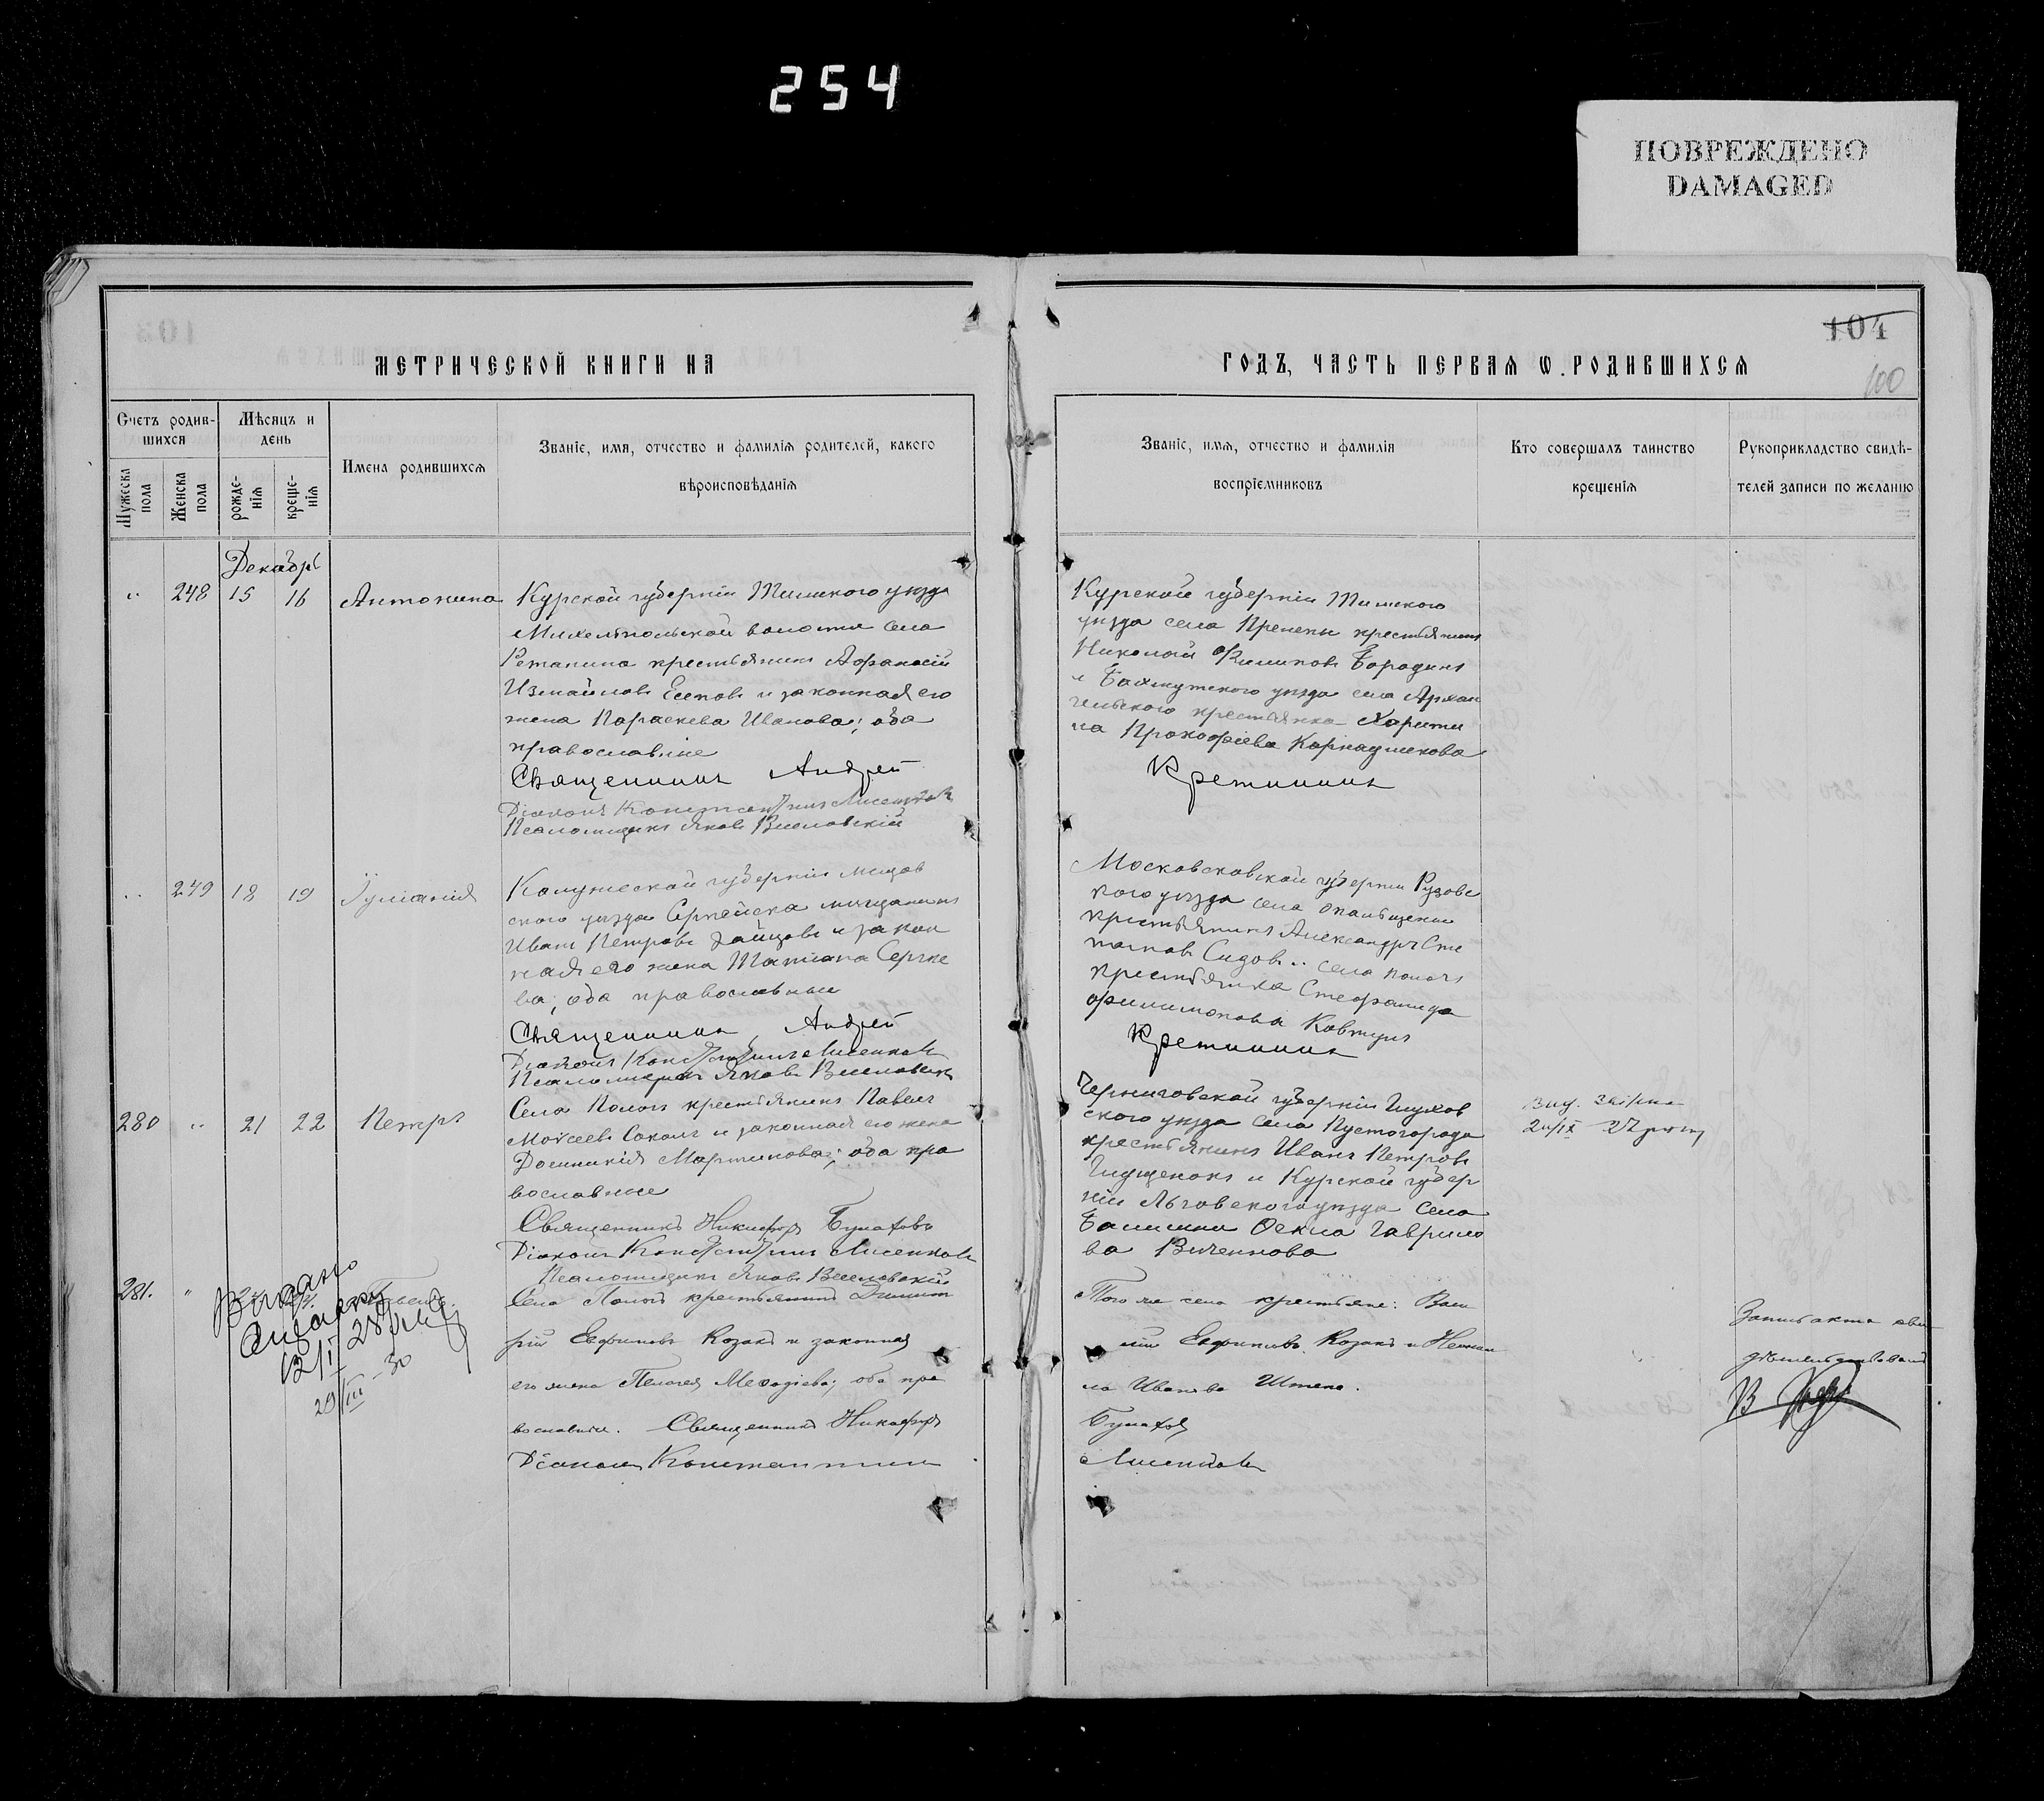 254
ПОВРЕЖДЕНО
DAMAGED
104
100
МЕТРИЧЕСКОЙ КНИГИ НА
ГОДЪ, ЧАСТЬ ПЕРВАЯ Ѡ. РОДИВШИХСЯ
Счетъ родив-
шихся
Мѣсяцъ и
день
Мужеска
пола
Женска
пола
рожде-
нія
креще-
нія
Имена родившихся
Званіе, имя, отчество и фамилія родителей, какого
вѣроисповѣданія
Званіе, имя, отчество и фамилія
воспріемниковъ
Кто совершалъ таинство
крещенія
Рукоприкладство свидѣ-
телей записи по желанію
Декабрь
" 248 15 16 Антонина
Курской губерніи Тимского уѣзда
волости села
крестьянинъ Афанасій
Измаиловъ Есиповъ и законная его
жена Параскева Иванова; оба
православные
Священникъ Андрей
Діаконъ Константинъ Лисенковъ
Псаломщикъ Яковъ Веселовскій
Курской губерніи Тимского
уѣзда села крестьянинъ
Николай Филиповъ Бородинъ
и Бахмутского уѣзда села Архан
гельского крестьянка Харити
на Прокофіева
Кретининъ
" 249 18 19 Іуліанія
Калужеской губерніи Мещов
ского уѣзда Серпейска мещанинъ
Иванъ Петровъ Зайцовъ и закон
ная его жена Татіана Сергѣе
ва; оба православные
Священникъ Андрей
Діаконъ Константинъ Лисенковъ
Псаломщикъ Яковъ Веселовскій
Московсковской губерніи Рузовс
кого уѣзда села
крестьянинъ Александръ Сте
пановъ Сидовъ и села Пологъ
крестьянка Стефанида
Филимонова Ковтунъ
Кретининъ
280 " 21 22 Петръ
Села Пологъ крестьянинъ Павелъ
Моѵсеевъ Соколъ и законная его жена
Домникія Мартинова; оба пра
вославные
Священникъ Никифоръ Булаховъ
Діаконъ Константинъ Лисенковъ
Псаломщикъ Яковъ Веселовскій
Черниговской губерніи Глухов
ского уѣзда села Пустогорода
крестьянинъ Иванъ Петровъ
Глущенокъ и Курской губер
ніи Льговского уѣзда села
Ѳекла Гаврило
ва
281. "
Села Пологъ крестьянинъ Димит
рій Евфимовъ Козакъ и законная
его жена Пелагея Меѳодіева; оба пра
вославные. Священникъ Никифоръ
Діаконъ Константинъ
Того же села крестьяне: Васи
лій Евфимовъ Козакъ и
ла Иванова Штепа.
Булаховъ
Лисенковъ
Видано